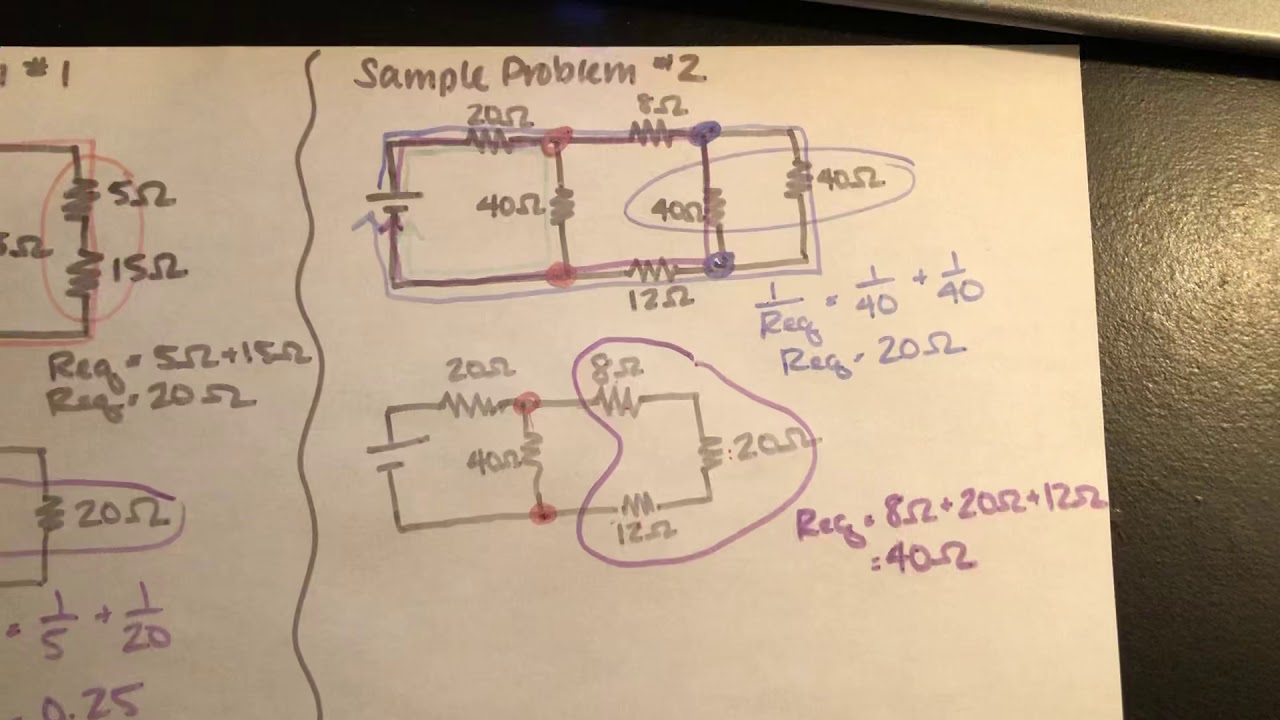 #1
5Ω
15Ω
Req = 5Ω + 15Ω
Req = 20Ω
20Ω
= 1/5 + 1/20
0.25
Sample Problem #2
20Ω
8Ω
40Ω
40Ω
40Ω
12Ω
1/Req = 1/40 + 1/40
Req = 20Ω
20Ω
8Ω
40Ω
20Ω
12Ω
Req = 8Ω + 20Ω + 12Ω
= 40Ω